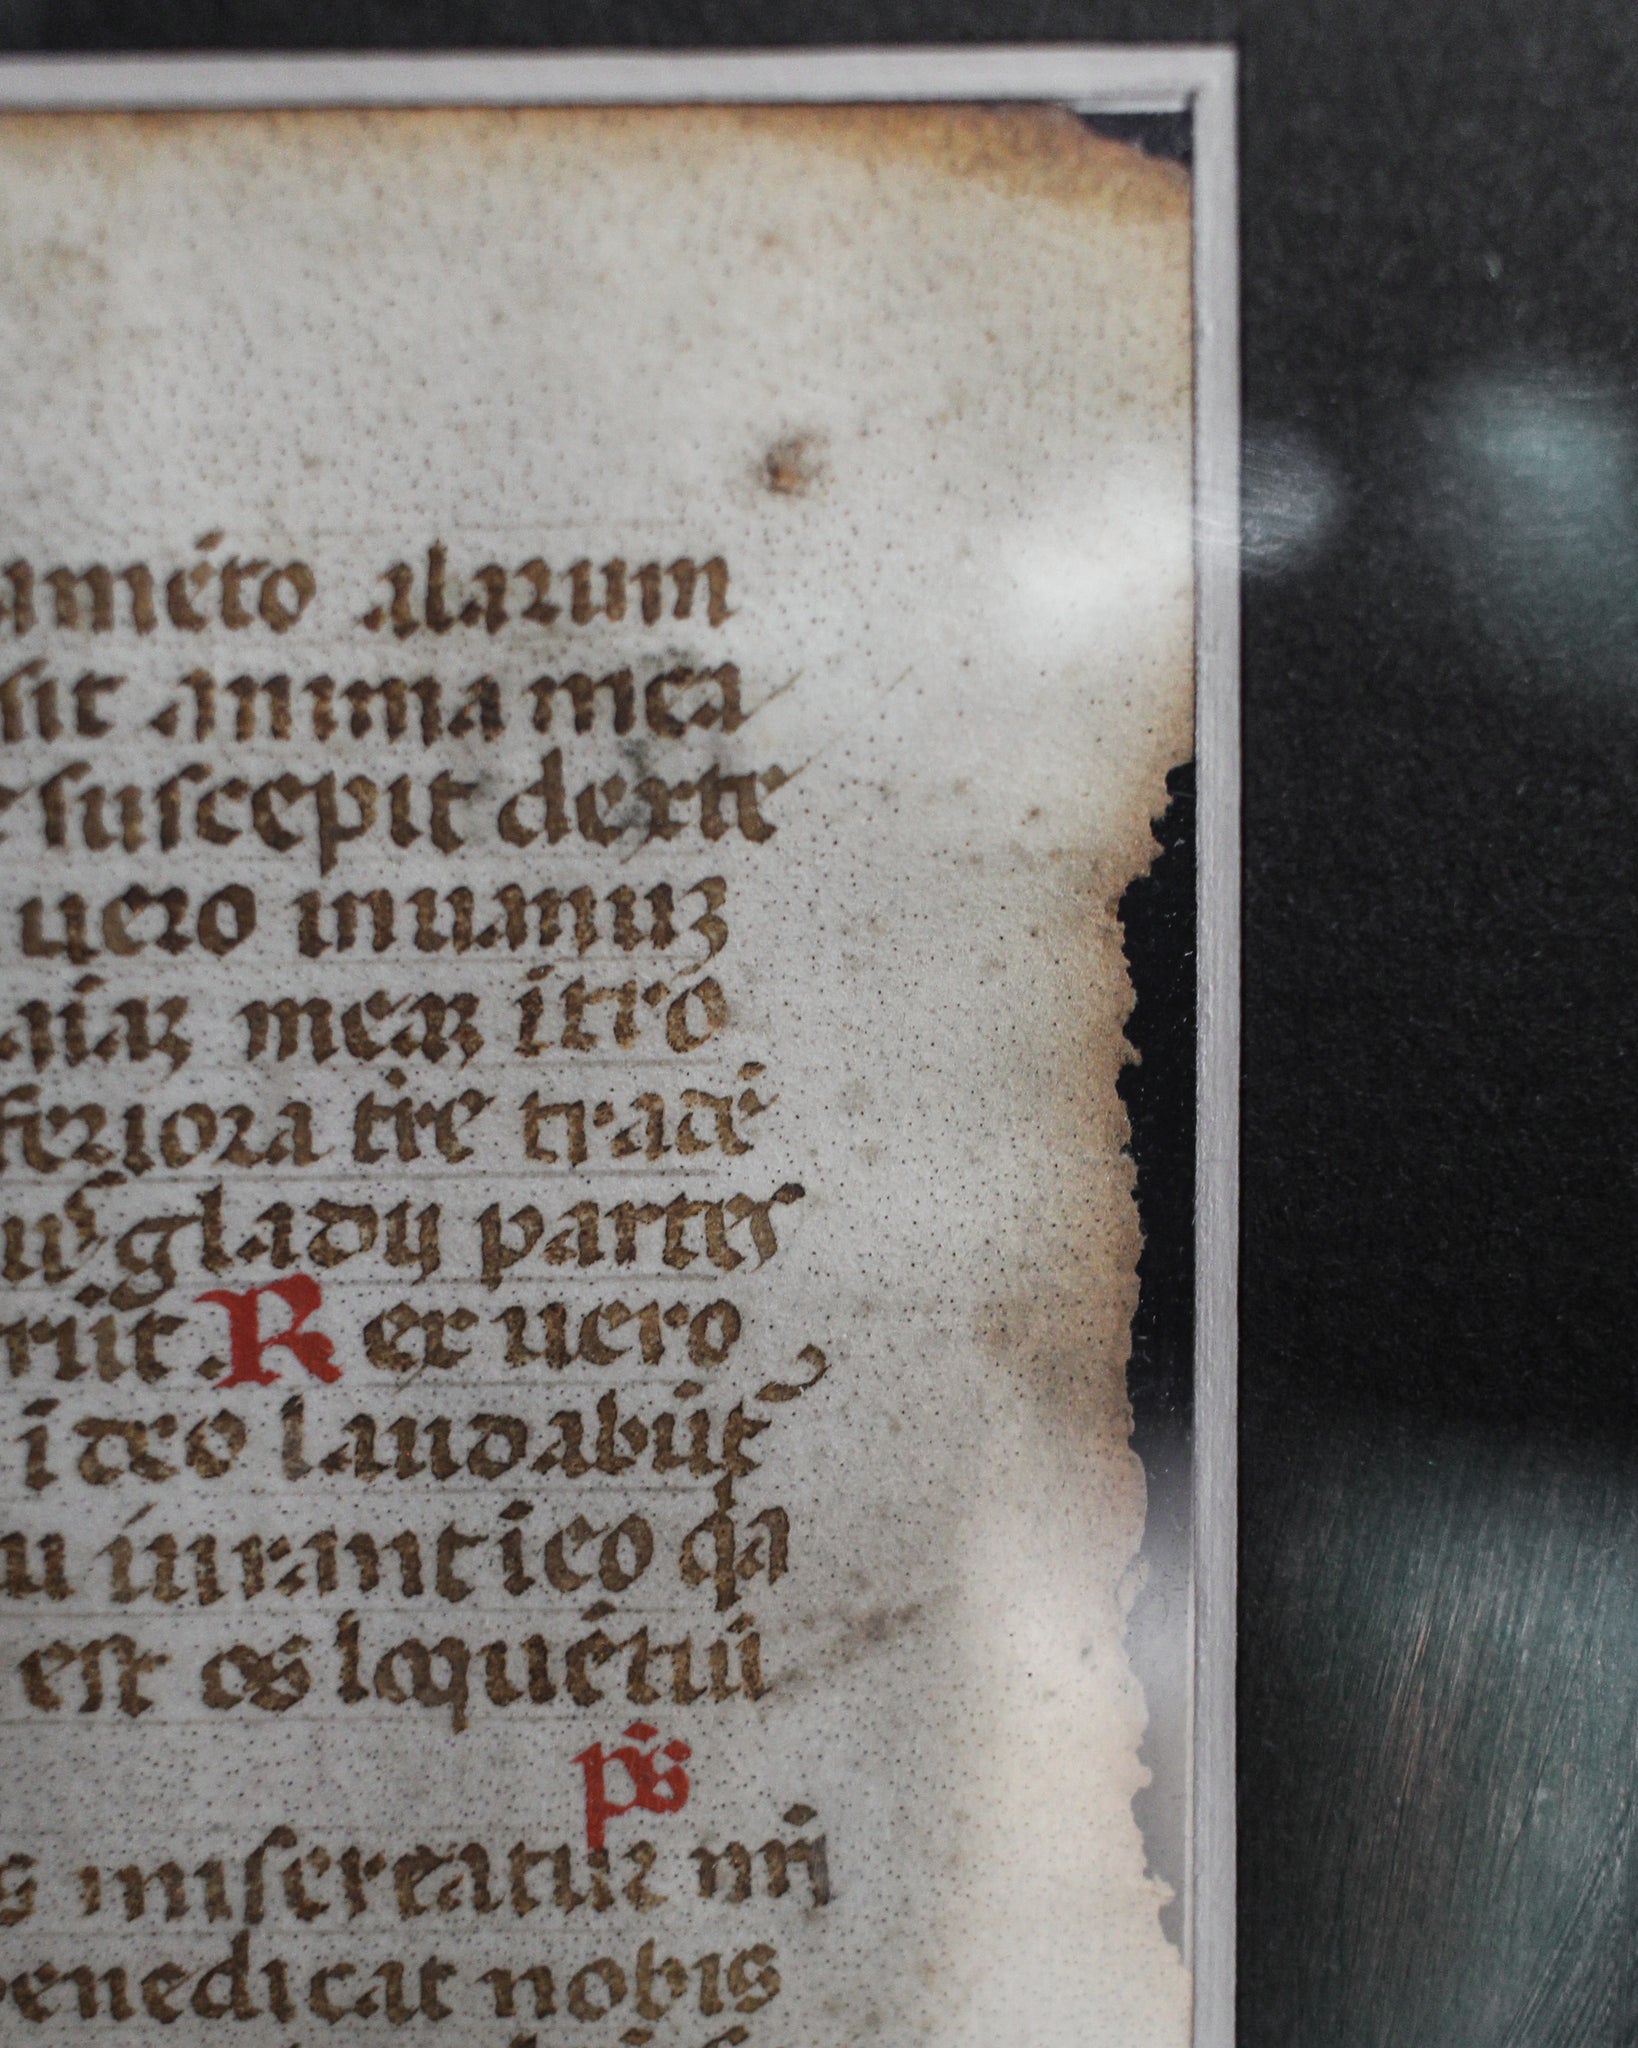 améto alarum
sit anima mea
suscepit dexte
uero inuanuʒ
aíaꝝ meaꝝ ītro
feriora tr̄e tradé
us gladij partes
rūt. Rex uero
ī deo laudabūt
u iurant ī eo qꝛa
est os loquétiū
ps̄
s misereatur nr̄i
benedicat nobis